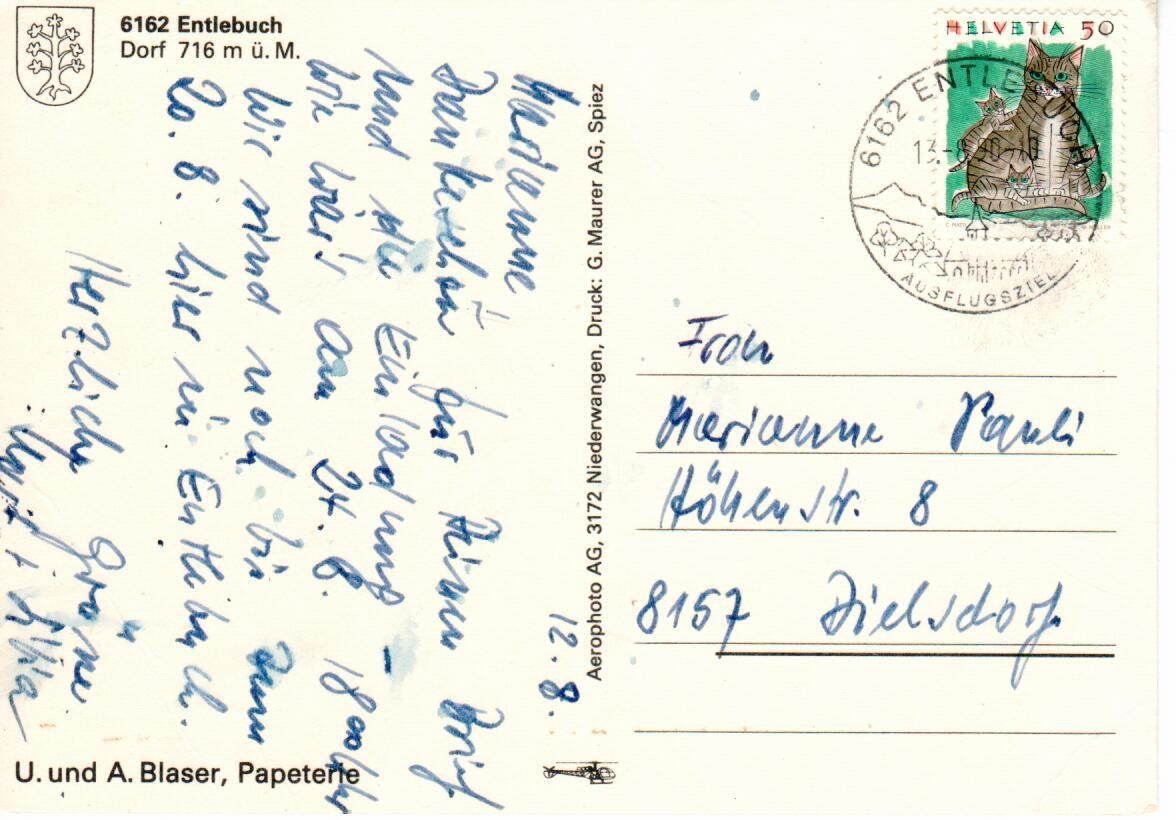 6162 Entlebuch
Dorf 716 m ü. M.
HELVETIA 50
6162 ENTLEBUCH
13.-8.90
AUSFLUGSZIEL
12. 8.
Marianne
Dankeschön für Deinen Brief
und die Einladung -
Wie wär's am 24. 8. 18 00 Uhr
Wir sind noch bis zum
20. 8. hier in Entlebuch.
Herzliche Grüsse
Aerophoto AG, 3172 Niederwangen, Druck: G. Maurer AG, Spiez
Frau
Marianne Pauli
Höhenstr. 8
8157 Dielsdorf
U. und A. Blaser, Papeterie